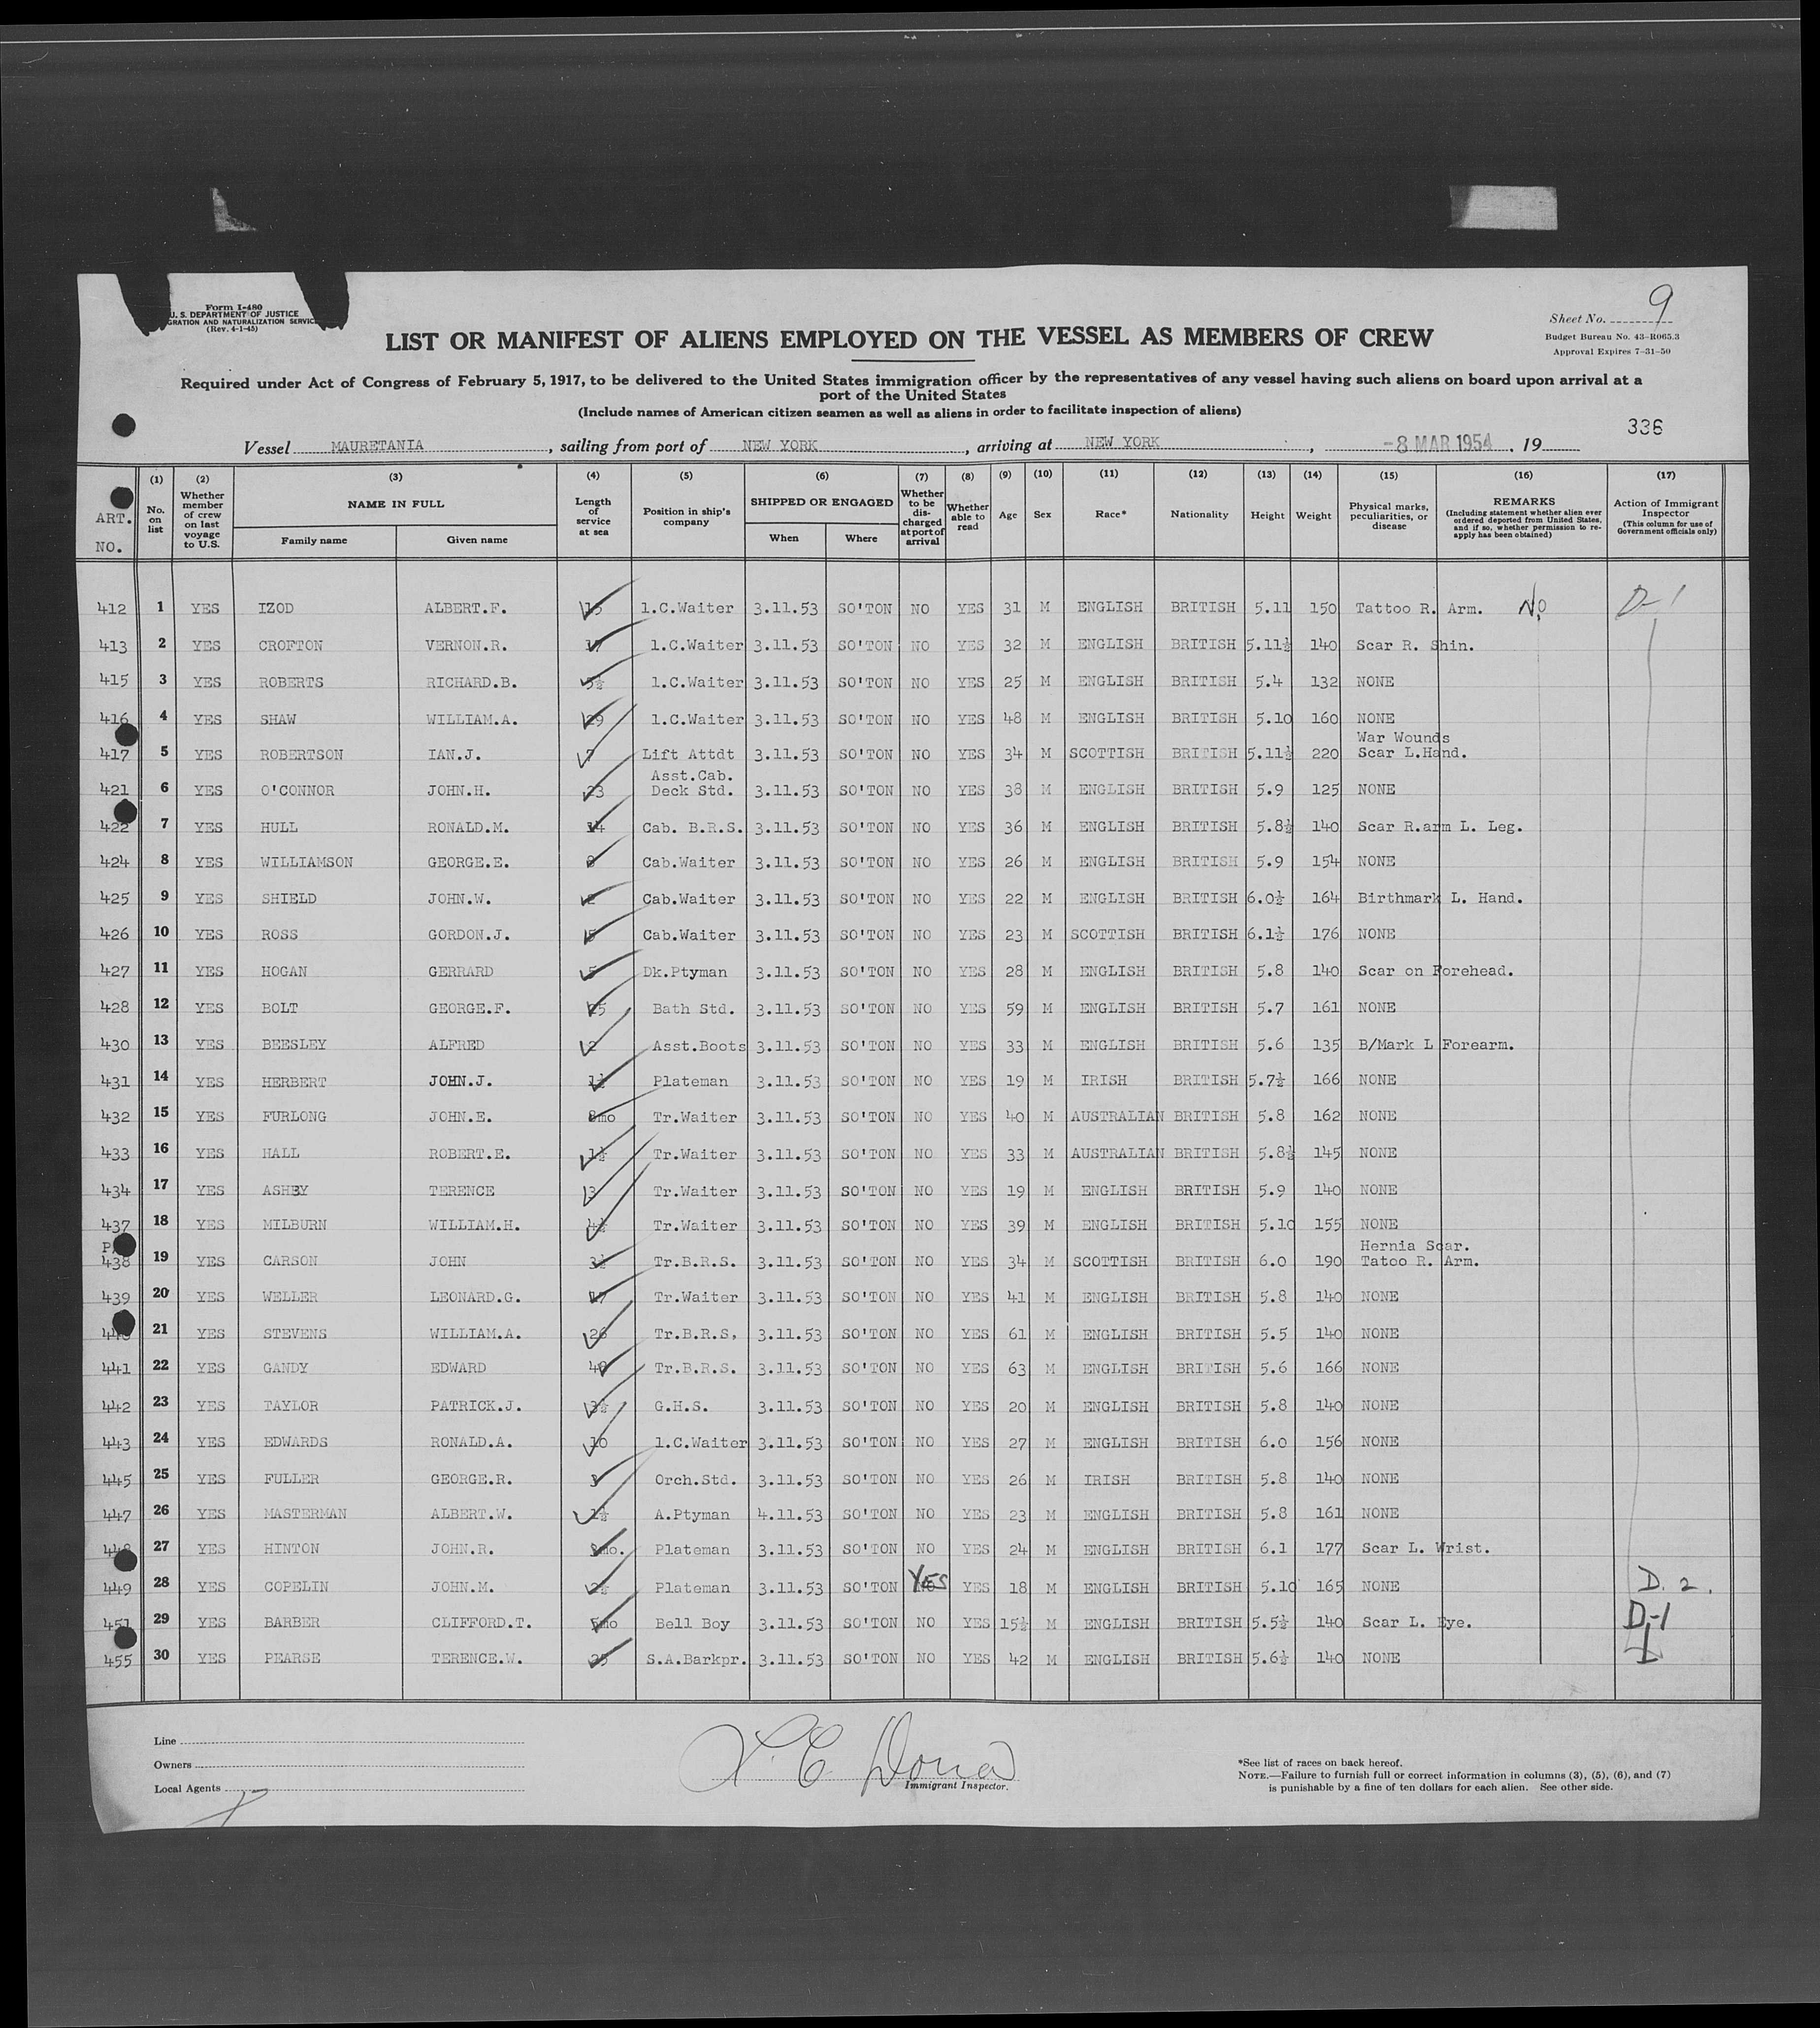 Form I-480
U. S. DEPARTMENT OF JUSTICE
GRATION AND NATURALIZATION SERVIC
(Rev. 4-1-45)
9
Sheet No.
Budget Bureau No. 43-R065.3
Approval Expires 7-31-50
LIST OR MANIFEST OF ALIENS EMPLOYED ON THE VESSEL AS MEMBERS OF CREW
Required under Act of Congress of February 5, 1917, to be delivered to the United States immigration officer by the representatives of any vessel having such aliens on board upon arrival at a
port of the United States
(Include names of American citizen seamen as well as aliens in order to facilitate inspection of aliens)
336
Vessel MAURETANIA, sailing from port of NEW YORK, arriving at NEW YORK, -8 MAR 1954, 19
ART. NO. (1) No. on list (2) Whether member of crew on last voyage to U.S. (3) NAME IN FULL Family name Given name (4) Length of service at sea (5) Position in ship's company (6) SHIPPED OR ENGAGED When Where (7) Whether to be discharged at port of arrival (8) Whether able to read (9) Age (10) Sex (11) Race* (12) Nationality (13) Height (14) Weight (15) Physical marks, peculiarities, or disease (16) REMARKS (Including statement whether alien ever ordered deported from United States, and if so, whether permission to reapply has been obtained) (17) Action of Immigrant Inspector (This column for use of Government officials only)
412 1 YES IZOD ALBERT.F. 15 1.C.Waiter 3.11.53 SO'TON NO YES 31 M ENGLISH BRITISH 5.11 150 Tattoo R. Arm. No D-1
413 2 YES CROFTON VERNON.R. 17 1.C.Waiter 3.11.53 SO'TON NO YES 32 M ENGLISH BRITISH 5.11½ 140 Scar R. Shin.
415 3 YES ROBERTS RICHARD.B. 5½ 1.C.Waiter 3.11.53 SO'TON NO YES 25 M ENGLISH BRITISH 5.4 132 NONE
416 4 YES SHAW WILLIAM.A. 29 1.C.Waiter 3.11.53 SO'TON NO YES 48 M ENGLISH BRITISH 5.10 160 NONE
417 5 YES ROBERTSON IAN.J. 7 Lift Attdt 3.11.53 SO'TON NO YES 34 M SCOTTISH BRITISH 5.11½ 220 War Wounds Scar L.Hand.
421 6 YES O'CONNOR JOHN.H. 23 Asst.Cab. Deck Std. 3.11.53 SO'TON NO YES 38 M ENGLISH BRITISH 5.9 125 NONE
422 7 YES HULL RONALD.M. 14 Cab. B.R.S. 3.11.53 SO'TON NO YES 36 M ENGLISH BRITISH 5.8½ 140 Scar R.arm L. Leg.
424 8 YES WILLIAMSON GEORGE.E. 8 Cab.Waiter 3.11.53 SO'TON NO YES 26 M ENGLISH BRITISH 5.9 154 NONE
425 9 YES SHIELD JOHN.W. 2 Cab.Waiter 3.11.53 SO'TON NO YES 22 M ENGLISH BRITISH 6.0½ 164 Birthmark L. Hand.
426 10 YES ROSS GORDON.J. 5 Cab.Waiter 3.11.53 SO'TON NO YES 23 M SCOTTISH BRITISH 6.1½ 176 NONE
427 11 YES HOGAN GERRARD 5 Dk.Ptyman 3.11.53 SO'TON NO YES 28 M ENGLISH BRITISH 5.8 140 Scar on Forehead.
428 12 YES BOLT GEORGE.F. Bath Std. 3.11.53 SO'TON NO YES 59 M ENGLISH BRITISH 5.7 161 NONE
430 13 YES BEESLEY ALFRED 2 Asst.Boots 3.11.53 SO'TON NO YES 33 M ENGLISH BRITISH 5.6 135 B/Mark L Forearm.
431 14 YES HERBERT JOHN.J. 1½ Plateman 3.11.53 SO'TON NO YES 19 M IRISH BRITISH 5.7½ 166 NONE
432 15 YES FURLONG JOHN.E. 8mo Tr.Waiter 3.11.53 SO'TON NO YES 40 M AUSTRALIAN BRITISH 5.8 162 NONE
433 16 YES HALL ROBERT.E. 1½ Tr.Waiter 3.11.53 SO'TON NO YES 33 M AUSTRALIAN BRITISH 5.8½ 145 NONE
434 17 YES ASHBY TERENCE 3 Tr.Waiter 3.11.53 SO'TON NO YES 19 M ENGLISH BRITISH 5.9 140 NONE
437 18 YES MILBURN WILLIAM.H. 4½ Tr.Waiter 3.11.53 SO'TON NO YES 39 M ENGLISH BRITISH 5.10 155 NONE
438 19 YES CARSON JOHN 3½ Tr.B.R.S. 3.11.53 SO'TON NO YES 34 M SCOTTISH BRITISH 6.0 190 Hernia Scar. Tatoo R. Arm.
439 20 YES WELLER LEONARD.G. 17 Tr.Waiter 3.11.53 SO'TON NO YES 41 M ENGLISH BRITISH 5.8 140 NONE
440 21 YES STEVENS WILLIAM.A. 26 Tr.B.R.S, 3.11.53 SO'TON NO YES 61 M ENGLISH BRITISH 5.5 140 NONE
441 22 YES GANDY EDWARD 40 Tr.B.R.S. 3.11.53 SO'TON NO YES 63 M ENGLISH BRITISH 5.6 166 NONE
442 23 YES TAYLOR PATRICK.J. 3½ G.H.S. 3.11.53 SO'TON NO YES 20 M ENGLISH BRITISH 5.8 140 NONE
443 24 YES EDWARDS RONALD.A. 10 1.C.Waiter 3.11.53 SO'TON NO YES 27 M ENGLISH BRITISH 6.0 156 NONE
445 25 YES FULLER GEORGE.R. 3 Orch.Std. 3.11.53 SO'TON NO YES 26 M IRISH BRITISH 5.8 140 NONE
447 26 YES MASTERMAN ALBERT.W. 1½ A.Ptyman 4.11.53 SO'TON NO YES 23 M ENGLISH BRITISH 5.8 161 NONE
448 27 YES HINTON JOHN.R. Plateman 3.11.53 SO'TON NO YES 24 M ENGLISH BRITISH 6.1 177 Scar L. Wrist.
449 28 YES COPELIN JOHN.M. 2½ Plateman 3.11.53 SO'TON YES YES 18 M ENGLISH BRITISH 5.10 165 NONE D. 2.
451 29 YES BARBER CLIFFORD.T. 5mo Bell Boy 3.11.53 SO'TON NO YES 15½ M ENGLISH BRITISH 5.5½ 140 Scar L. Eye. D-1
455 30 YES PEARSE TERENCE.W. 25 S.A.Barkpr. 3.11.53 SO'TON NO YES 42 M ENGLISH BRITISH 5.6½ 140 NONE
Line
Owners
Local Agents
Immigrant Inspector.
*See list of races on back hereof.
NOTE.—Failure to furnish full or correct information in columns (3), (5), (6), and (7)
is punishable by a fine of ten dollars for each alien. See other side.